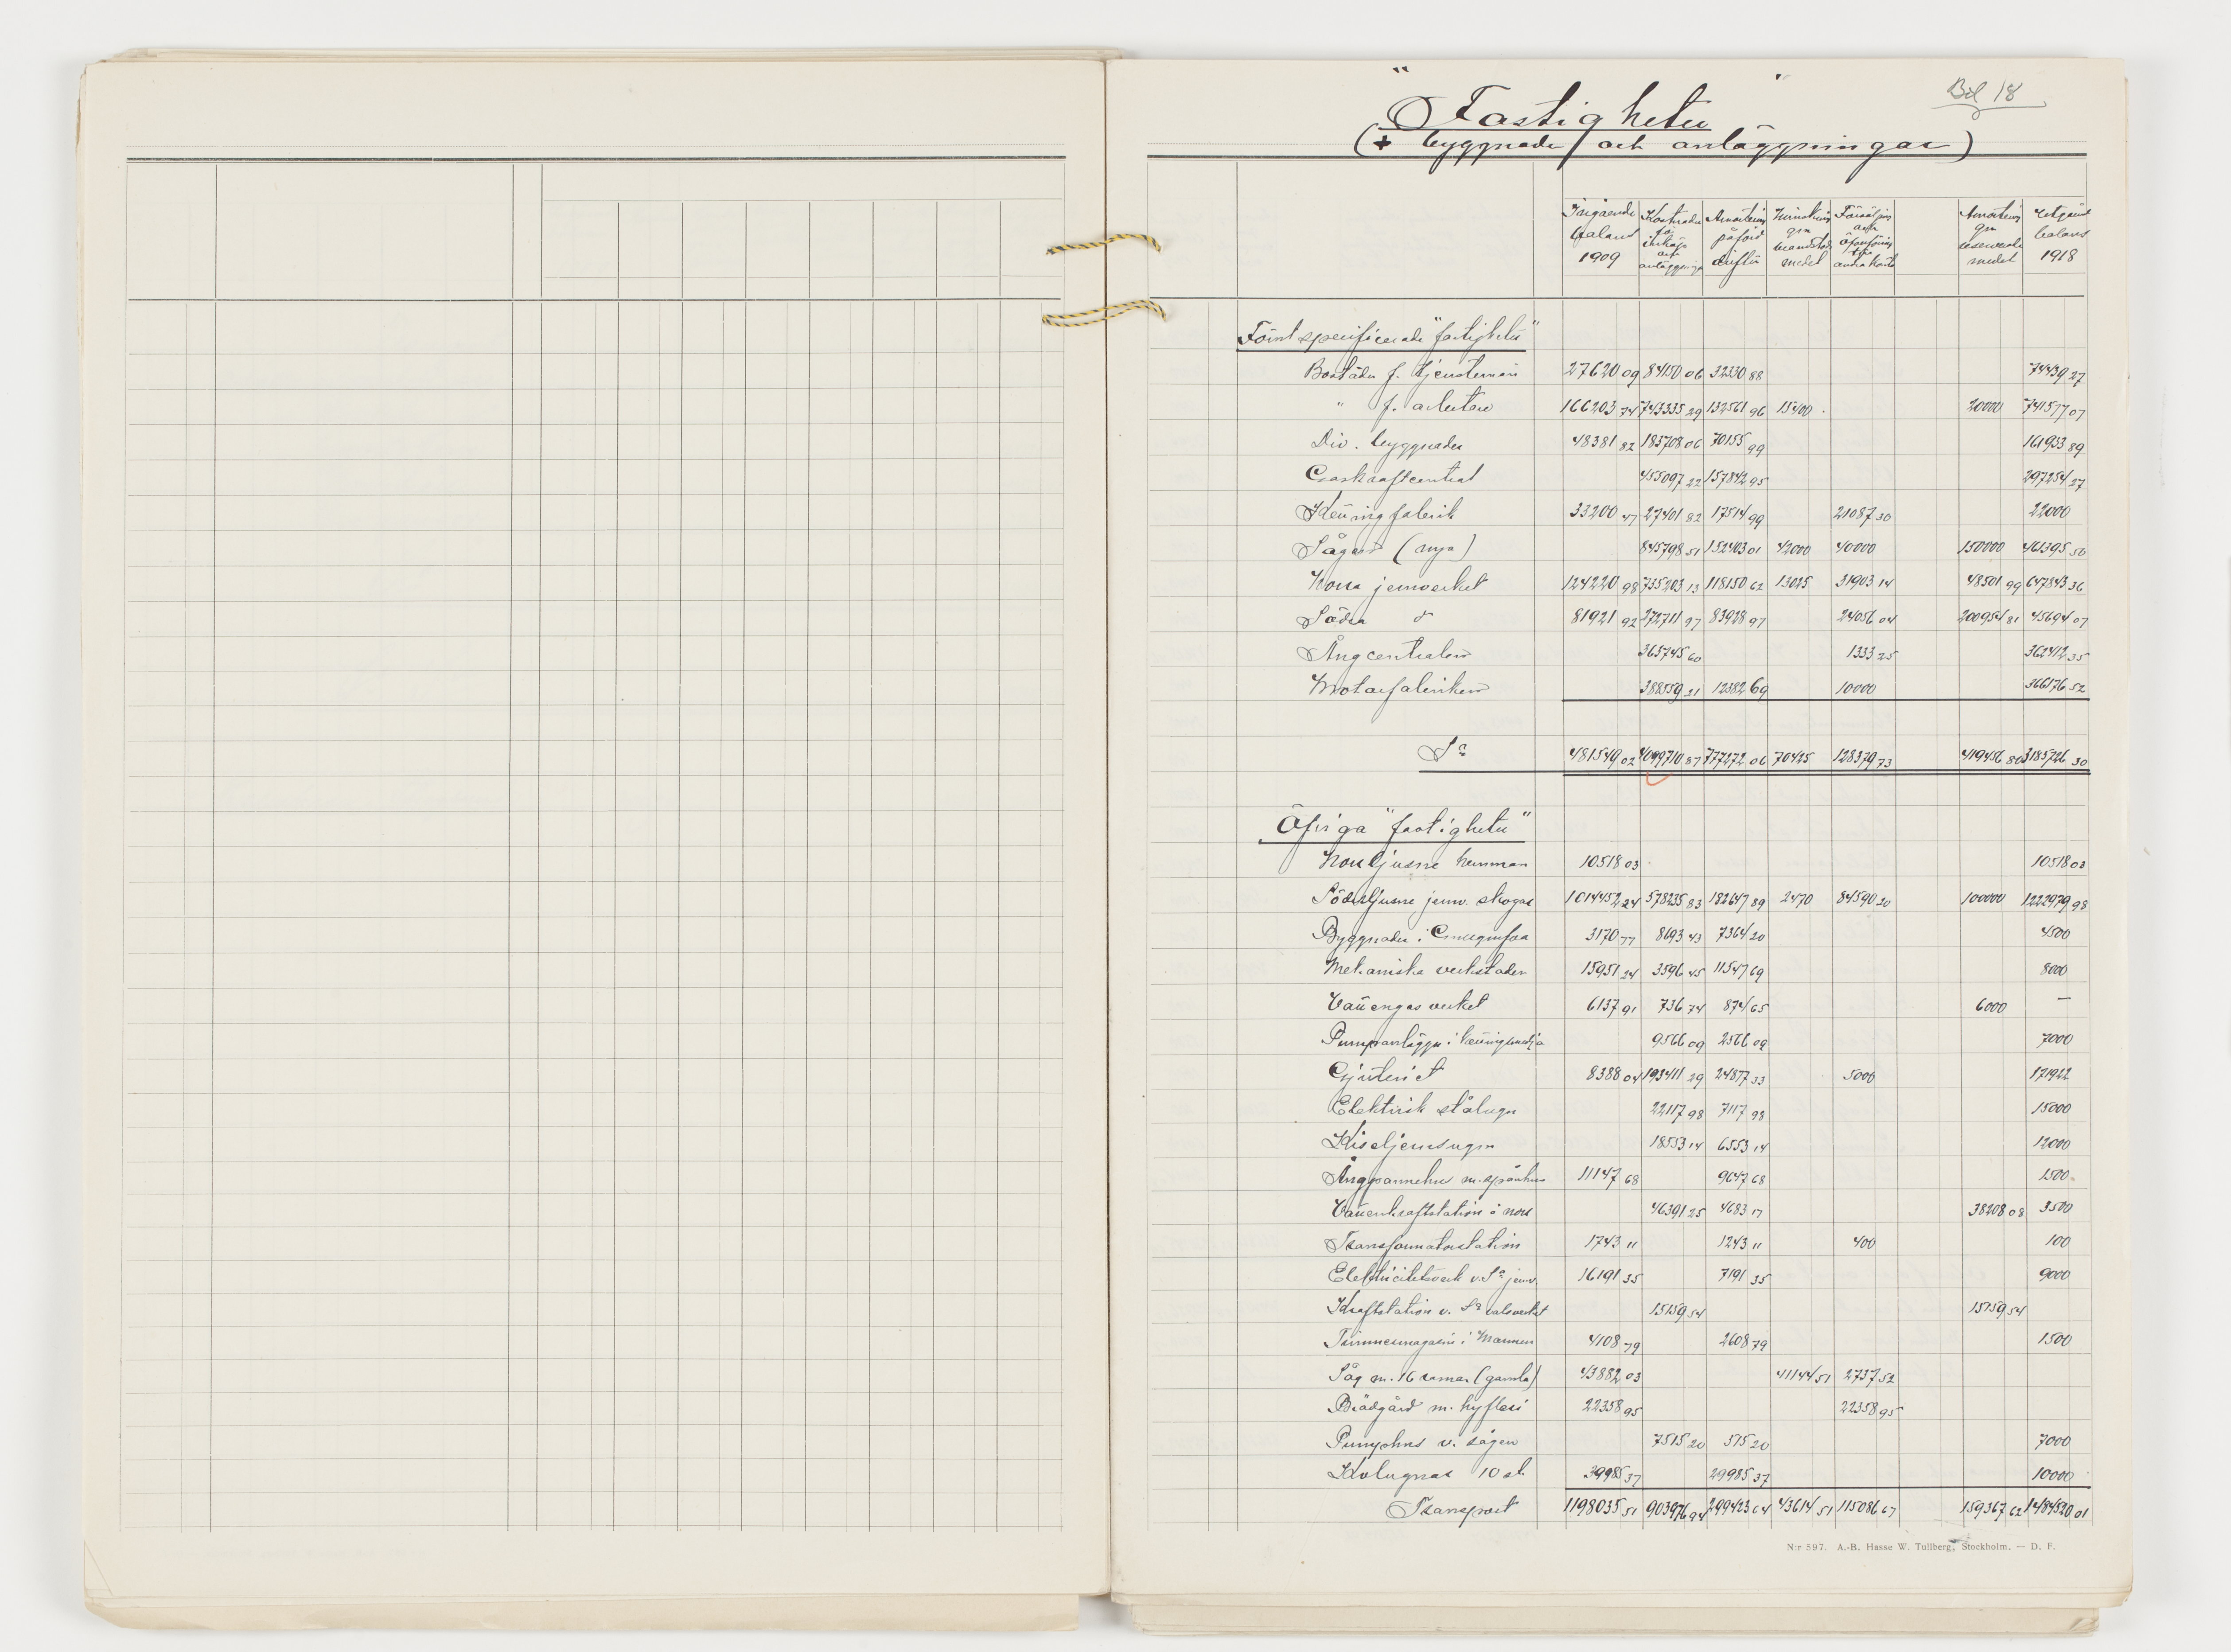 Bil 18
"Fastigheter"
(+ byggnader och anläggningar)
Ingående balans 1909
Kostnader för inköp och anläggningar
Amortering påförd driften
Minskning gm brandstods medel
Försäljning och öfverföring till andra konto
Amortering gm reserverade medel
Utgående balans 1918
Förut specificerade "fastigheter"
Bostäder f. tjenstemän 27620 09 84150 06 32330 88 74439 27
" f. arbetare 166203 74 743335 29 132561 96 15400 . 20000 741577 07
Div. byggnader 48381 82 183708 06 70155 99 161933 89
Gaskraftcentral 455097 22 157842 95 297254 27
Kevringfabrik 33200 47 27401 82 17514 99 21087 30 22000
Sågen (nya) 845798 51 152403 01 42000 40000 150000 461395 50
Norra jernverket 124220 98 735203 13 118150 62 13025 31903 14 48501 99 647843 36
Södra d:o 81921 92 272711 97 83928 97 24056 04 200954 81 45694 07
Ångcentralen 363745 60 1333 25 362412 35
Motorfabriken 388559 21 12382 69 10000 366176 52
S:a 481549 02 4099710 87 777272 06 70425 128379 73 419456 80 3185726 30
Öfriga "fastigheter"
Norrljusne hemman 10518 03 10518 03
Söderljusne jernv. skogar 1014452 24 578235 83 182647 89 2470 84590 20 100000 1222979 98
Byggnader i 3170 77 8693 43 7364 20 4500
Mekaniska verkstaden 15951 24 3596 45 11547 69 8000
Vattengasverket 6137 91 736 74 874 65 6000 —
Pumpanläggn i 9566 09 2566 09 7000
Gjuteriet 8388 04 193411 29 24877 33 5000 171922
Elektrisk stålugn 22117 98 7117 98 15000
Kiseljernsugn 18553 14 6553 14 12000
Ångpannehus m. spånhus 11147 68 9647 68 1500
Vattenkraftstation i norr 46391 25 4683 17 38208 08 3500
Transformatorstation 1743 11 1243 11 400 100
Elektricitetsverk v. S:a jernv. 16191 35 7191 35 9000
Kraftstation v. S:a valsverket 15159 54 15159 54
Timmermagasin i Mannen 4108 79 2608 79 1500
Såg m. 16 ramar (gamla) 43882 03 41144 51 2737 52
Brädgård m. hyfleri 22358 95 22358 95
Pumphus v. sågen 7515 20 515 20 7000
Kolugnar 10 st. 39985 37 29985 37 10000
Transport 1198035 51 903976 94 299423 64 43614 51 115086 67 159367 62 1484520 01
N:r 597. A.-B. Hasse W. Tullberg, Stockholm. — D. F.